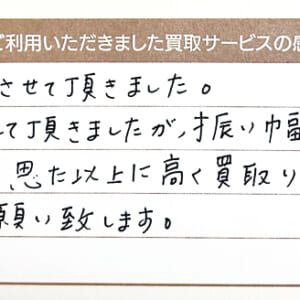 ご利用いただきました買取サービスの感
させて頂きました。
して頂きましたが、振い巾幅
思た以上に高く買取り
願い致します。